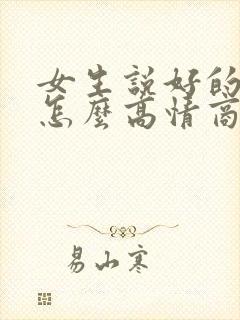 女生說好的
怎麼高情商
易山寒